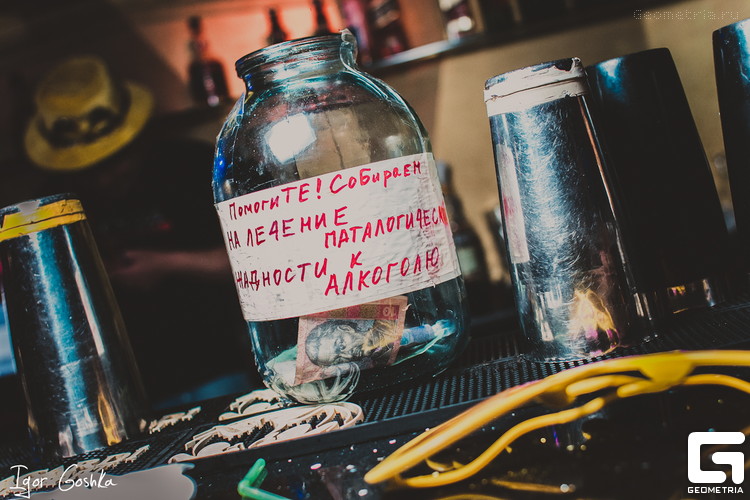 Geometria.ru
ПОМОГИТЕ! СОБИРАЕМ
НА ЛЕЧЕНИЕ
ПАТАЛОГИЧЕСКОЙ
ЖАДНОСТИ К
АЛКОГОЛЮ
Igor Goshka
GEOMETRIA